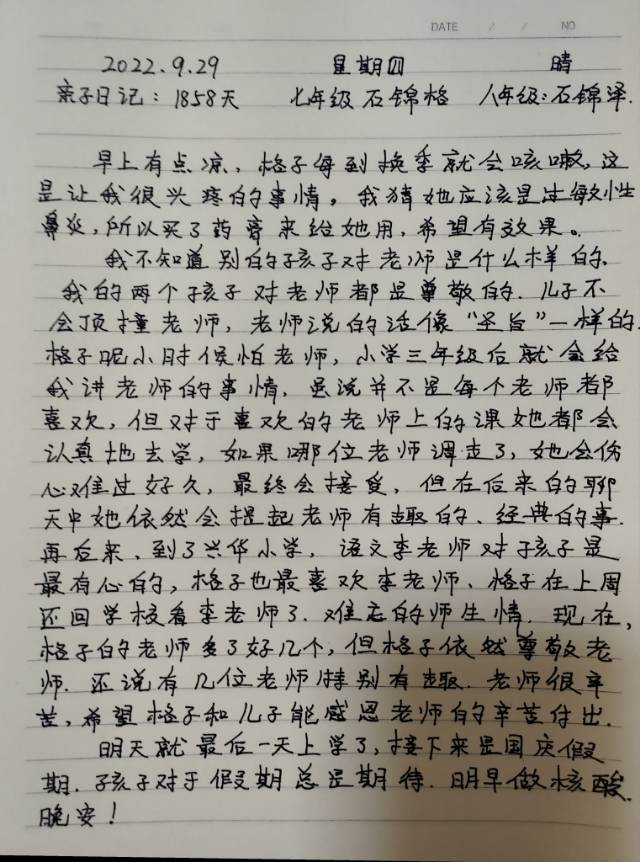 DATE / / NO
2022.9.29 星期四 晴
亲子日记：1858天 七年级 石锦格 八年级：石锦泽.
早上有点凉，格子每到换季就会咳嗽，这
是让我很头疼的事情。我猜她应该是过敏性
鼻炎，所以买了药膏来给她用，希望有效果。
我不知道别的孩子对老师是什么样的.
我的两个孩子对老师都是尊敬的.儿子不
会顶撞老师，老师说的话像“圣旨”一样的.
格子呢小时候怕老师，小学三年级后就会给
我讲老师的事情，虽说并不是每个老师都
喜欢，但对于喜欢的老师上的课她都会
认真地去学，如果哪位老师调走了，她会伤
心难过好久，最终会接受，但在后来的聊
天中她依然会提起老师有趣的、经典的事.
再后来、到了兴华小学，语文李老师对孩子是
最有心的，格子也最喜欢李老师、格子在上周
还回学校看李老师了.难忘的师生情.现在，
格子的老师多了好几个，但格子依然尊敬老
师.还说有几位老师特别有趣.老师很辛
苦，希望格子和儿子能感恩老师的辛苦付出.
明天就最后一天上学了，接下来是国庆假
期.孩子对于假期总是期待.明早做核酸.
晚安！